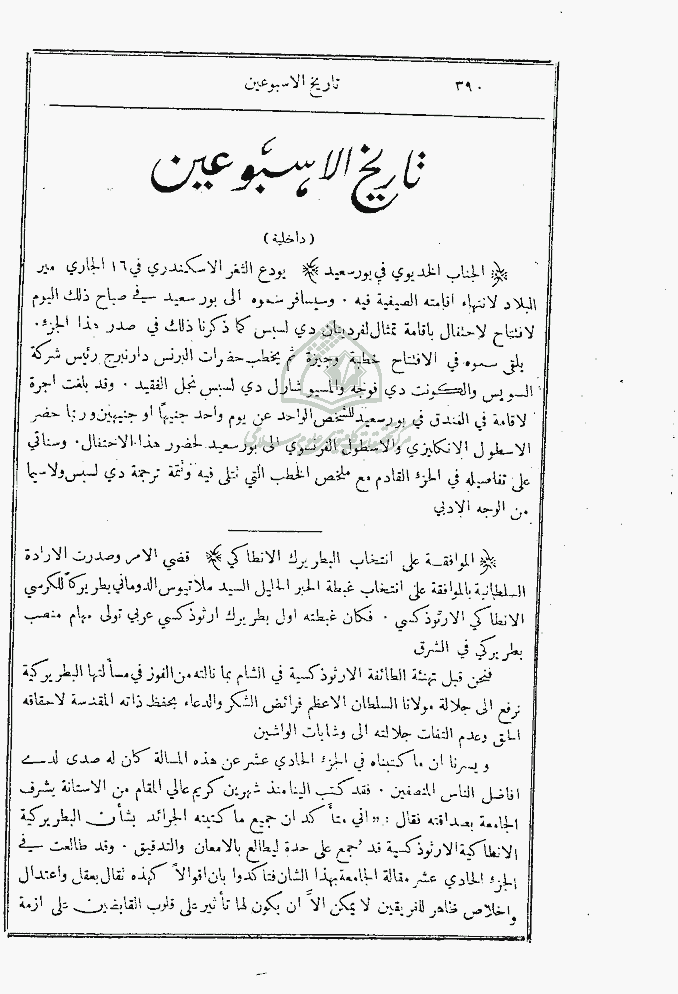 ٣٩٠
تاريخ الاسبوعين
تاريخ الاسبوعين
(داخلية)
﴿ الجناب الخديوي في بورسعيد ﴾ يودع الثغر الاسكندري في ١٦ الجاري مير
البلاد لانتهاء اقامته الصيفية فيه . وسيسافر سموه الى بورسعيد في صباح ذلك اليوم
لافتتاح الاحتفال باقامة تمثال لفردينان دي لسبس كما ذكرنا ذلك في صدر هذا الجزء.
يلقي سموه في الافتتاح خطبة وجيزة ثم يخطب حضرات البرنس دارنبرج رئيس شركة
السويس والكونت دي فوجه والمسيو شارل دي لسبس نجل الفقيد . وقد بلغت اجرة
الاقامة في الفندق في بورسعيد للشخص الواحد عن يوم واحد جنيهاً او جنيهين وربما حضر
الاسطول الانكليزي والاسطول الفرنسوي الى بورسعيد لحضور هذا الاحتفال . وسنأتي
على تفاصيله في الجزء القادم مع ملخص الخطب التي تتلى فيه وتتمة ترجمة دي لسبس ولاسيما
من الوجه الادبي
﴿ الموافقة على انتخاب البطريرك الانطاكي ﴾ قضي الامر وصدرت الارادة
السلطانية بالموافقة على انتخاب غبطة الحبر الجليل السيد ملاتيوس الدوماني بطريركاً للكرسي
الانطاكي الارثوذكسي . فكان غبطته اول بطريرك ارثوذكسي عربي تولى مهام منصب
بطريركي في الشرق
فنحن قبل تهنئة الطائفة الارثوذكسية في الشام بما نالته من الفوز في مسألتها البطريركية
نرفع الى جلالة مولانا السلطان الاعظم فرائض الشكر والدعاء بحفظ ذاته المقدسة لاحقاقه
الحق وعدم التفات جلالته الى وشايات الواشين
ويسرنا ان ما كتبناه في الجزء الحادي عشر عن هذه المسالة كان له صدى لدى
افاضل الناس المنصفين . فقد كتب الينا منذ شهرين كريم عالي المقام من الاستانة يشرف
الجامعة بصداقته فقال : « اني متأكد ان جميع ما كتبته الجرائد بشأن البطريركية
الانطاكية الارثوذكسية قد جمع على حدة ليطالع بالامعان والتدقيق . وقد طالعت في
الجزء الحادي عشر مقالة الجامعة بهذا الشان فتأكدوا بان اقوالاً كهذه تقال بعقل واعتدال
واخلاص ظاهر للفريقين لا يمكن الاَّ ان يكون لها تأثير على قلوب القابضين على ازمة